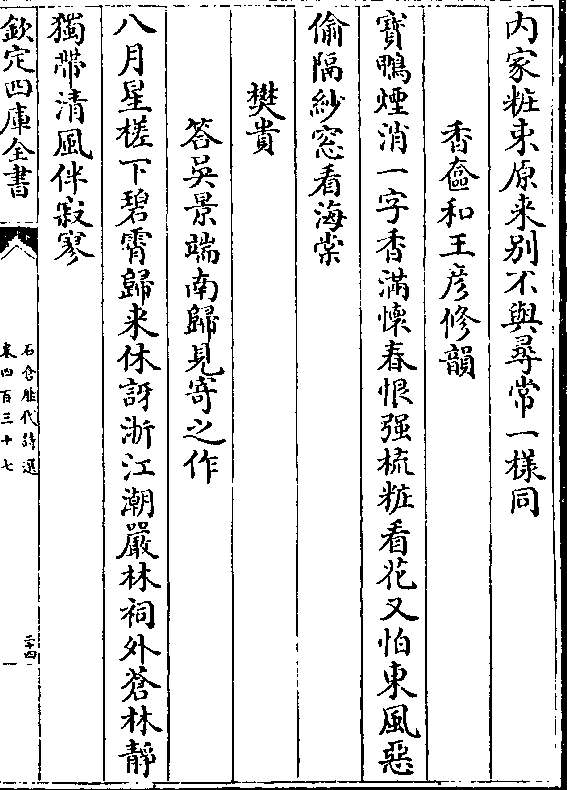 内家粧束原来别不與尋常一樣同
香奩和王彦修韻
寶鴨煙消一字香滿懐春恨强梳粧看花又怕東風惡
偷隔紗窓看海棠
樊貴
答吳景端南歸見寄之作
八月星槎下碧霄歸来休訝浙江潮嚴林祠外蒼林靜
獨帶清風伴寂寥
欽定四庫全書
石倉歴代詩選
卷四百三十七
三十四